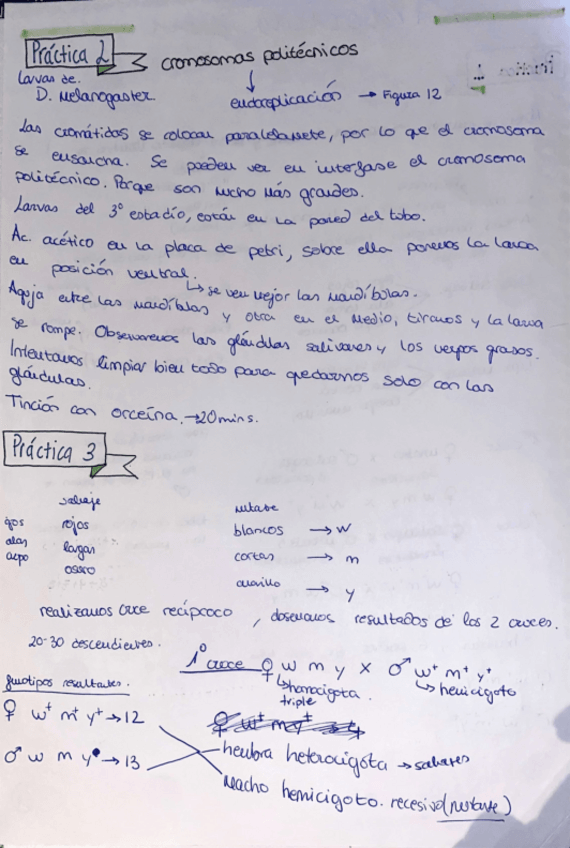 Práctica 2
cromosomas politécnicos
Larvas de
D. Melanogaster.
endoreplicación → Figura 12
Las cromátidas se colocan paralelamente, por lo que el cromosoma
se ensancha. Se pueden ver en interfase el cromosoma
politécnico. Porque son mucho más grandes.
Larvas del 3º estadío, están en la pared del tubo.
Ac. acético en la placa de petri, sobre ella ponemos la larva
en posición ventral.
↳ se ven mejor las mandíbulas.
Aguja entre las mandíblas y otra en el medio, tiramos y la larva
se rompe. Observaremos las glándulas salivares y los cuerpos grasos.
Intentamos limpiar bien todo para quedarnos solo con las
glándulas.
Tinción con orceína. → 20 mins.
Práctica 3
salvaje
mutante
ojos rojos blancos → w
alas largas cortas → m
cuerpo oscuro amarillo → y
realizamos cruce recíproco, observamos resultados de los 2 cruces.
20-30 descendientes.
1º cruce ♀ w m y x ♂ w⁺ m⁺ y⁺
↳ homocigota triple
↳ hemicigoto
genotipos resultantes.
♀ w⁺ m⁺ y⁺ → 12
♂ w m y → 13
hembra heterocigota → salvajes
Macho hemicigoto. recesivo (mutante)